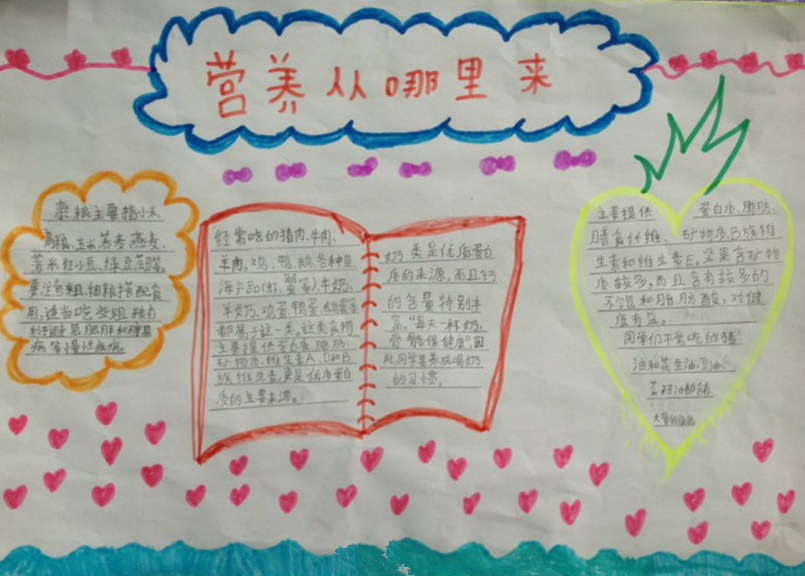 营养从哪里来
杂粮主要指小米、
高粱、玉米、荞麦、燕麦、
薏米、红小豆、绿豆等。
要注意粗细粮搭配食
用,适当吃些粗粮有
利于避免肥胖和糖尿
病等慢性疾病。
经常吃的猪肉、牛肉、
羊肉、鸡、鸭、鹅、各种鱼、
海产品(虾、蟹等)、牛奶、
羊奶、鸡蛋、鸭蛋、鹌鹑蛋
都属于这一类。这类食物
主要提供蛋白质、脂肪、
矿物质、维生素A、D和B
族维生素,更是优质蛋白
质的主要来源。
奶类是优质蛋白
质的来源,而且钙
的含量特别丰
富,“每天一杯奶,
能保健康”因
此,同学要养成喝奶
的习惯。
主要提供 蛋白质、脂肪、
膳食纤维、矿物质、B族维
生素和维生素E,坚果含矿物
质较多,而且含有较多的
不饱和脂肪酸,对健
康有益。
同学们不常吃的猪
油和花生油、豆油、
菜籽油都属